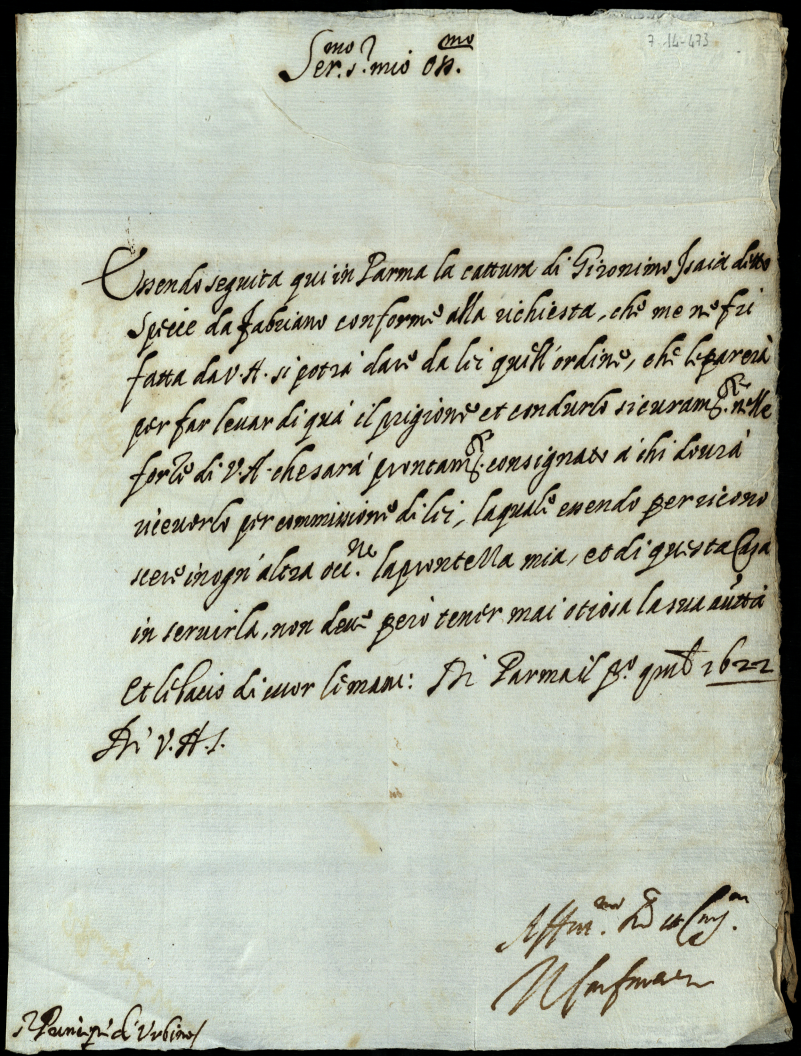 7-14-473
Ser.mo s.r mio oss.mo
Essendo seguita qui in Parma la cattura di Gironimo Isaia detto
Specie da Fabriano conforme alla richiesta, che me ne fu
fatta da V.A. si potrà dare da lei quell'ordine, che le parerà
per far levar di quà il prigione et condurlo sicuram.te nelle
forze di V.A. che sarà prontam.te consignato à chi dovrà
riceverlo per commissione di lei, la quale essendo per ricono
scere in ogn'altra occ.ne la prontezza mia, et di questa Casa
in servirla, non deve però tener mai otiosa la sua autt.tà
Et le bacio di cuor le mani: Di Parma il p.o 1622
Di V.A.S.
Aff.mo
S. Principe di Urbino